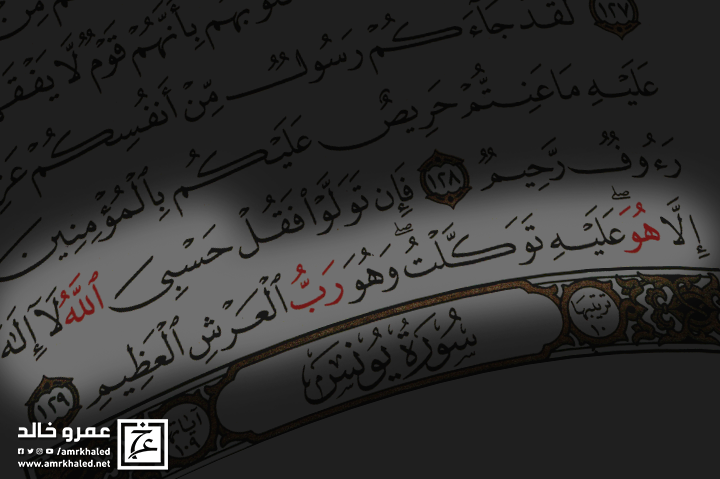 وبهم بأنهم قوم لا يفقه
١٢٧ لَقَدْ جَآءَكُمْ رَسُولٌ مِّنْ أَنفُسِكُمْ عَزِ
عَلَيْهِ مَا عَنِتُّمْ حَرِيصٌ عَلَيْكُم بِٱلْمُؤْمِنِينَ
رَءُوفٌ رَّحِيمٌ ١٢٨ فَإِن تَوَلَّوْا۟ فَقُلْ حَسْبِىَ ٱللَّهُ لَآ إِلَٰهَ
إِلَّا هُوَ ۖ عَلَيْهِ تَوَكَّلْتُ ۖ وَهُوَ رَبُّ ٱلْعَرْشِ ٱلْعَظِيمِ ١٢٩
ترتيبها ١٠
سُورَةُ يُونُسَ
آياتها ١٠٩
عمرو خالد
/amrkhaled
www.amrkhaled.net